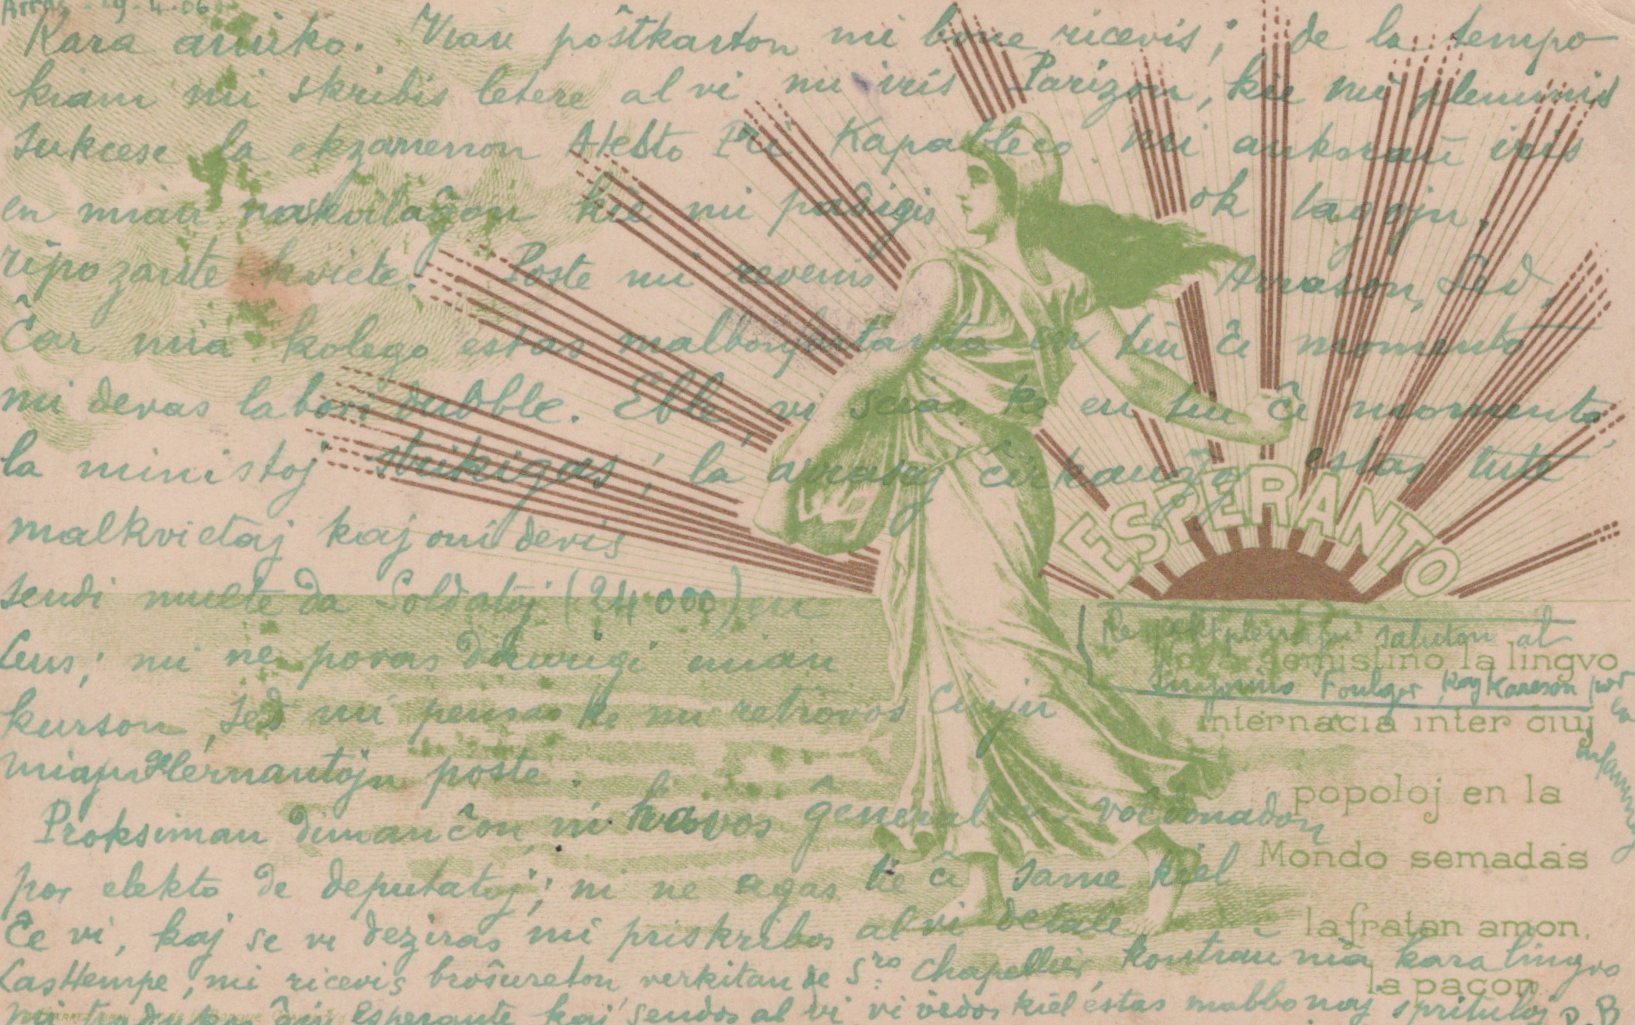 Arras 29-4-06
Kara amiko. Vian pôstkarton mi bone ricevis; de la tempo
kiam mi skribis letere al vi mi iris Parizon, kie mi plenumis
sukcese la ekzamenon Atesto Pri Kapableco. mi ankoraŭ iris
en mian naskvilaĝon kie mi pasigis ok tagojn,
ripozante kviete. Poste mi revenis Arrason, Sed,
Ĉar mia kolego estas malbonfartanta en tiu ĉi momento
mi devas labori dubble. Eble, vi scias ke en tiu ĉi momento
la ministoj strikigas; la arrasaj ĉirkaŭaĵoj estas tute
malkvietaj kaj oni devis
sendi multe da Soldatoj (24000) en
Lens; mi ne povas daŭrigi mian
kurson, sed mi pensas ke mi retrovos Ĉiujn
miajn lernantojn poste.
Proksiman dimanĉon, ni havos ĝeneral voĉdonadon
por elekto de deputatoj; ni ne agas tie ĉi same kiel
ĉe vi, kaj se vi deziras, mi priskribos al vi detale
Lasttempe, mi ricevis broŝureton verkitan de Sro Chapellier kontraŭ nia kara lingvo
mi tradukos ĝin Esperante kaj sendos al vi vi vidos kiel estas malbonaj spirituloj P.B
Respektplenajn saluton al
Sinjorino Foulger kaj Kareson por la
infanino
ESPERANTO
Nova semistino, la lingvo
internacia inter ciuj
popoloj en la
Mondo semadas
la fratan amon,
la pacon